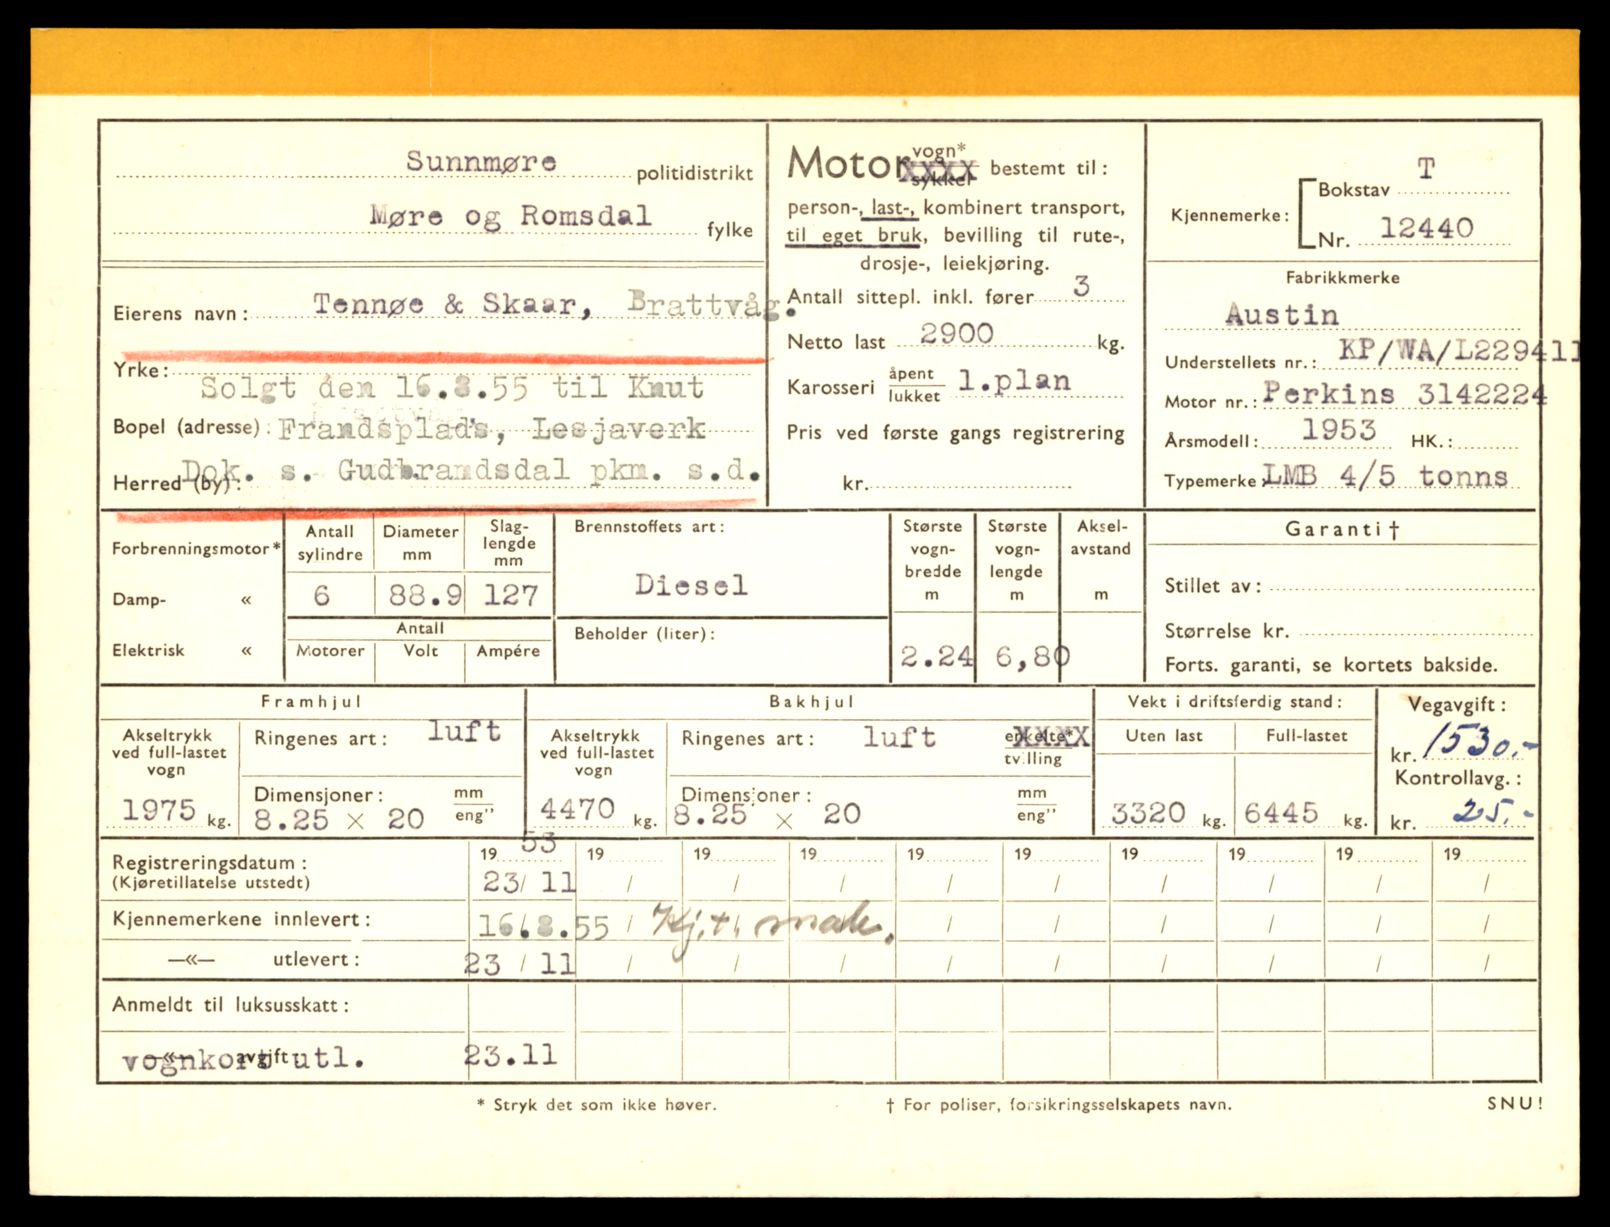 Sunnmøre politidistrikt
Møre og Romsdal fylke
Eierens navn: Tennøe & Skaar, Brattvåg.
Yrke:
Solgt den 16.8.55 til Knut
Bopel (adresse): Frandsplads, Lesjaverk
Herred (by): Dok. s. Gudbrandsdal pkm. s.d.
Motor vogn* sykkel xxxx bestemt til:
person-, last-, kombinert transport,
til eget bruk, bevilling til rute-,
drosje-, leiekjøring.
Antall sittepl. inkl. fører 3
Netto last 2900 kg.
Karosseri åpent lukket l.plan
Pris ved første gangs registrering
kr.
Kjennemerke: Bokstav T
Nr. 12440
Fabrikkmerke
Austin
Understellets nr.: KP/WA/L229411
Motor nr.: Perkins 3142224
Årsmodell: 1953 HK.:
Typemerke: LMB 4/5 tonns
Forbrenningsmotor*
Damp- «
Elektrisk «
Antall sylindre
Diameter mm
Slag-lengde mm
6 88.9 127
Antall
Motorer Volt Ampére
Brennstoffets art:
Diesel
Beholder (liter):
Største vogn-bredde m
Største vogn-lengde m
Aksel-avstand m
2.24 6,80
Garanti †
Stillet av:
Størrelse kr.
Forts. garanti, se kortets bakside.
Framhjul
Akseltrykk
ved full-lastet
vogn
1975 kg.
Ringenes art: luft
Dimensjoner: mm
8.25 × 20 eng"
Bakhjul
Akseltrykk
ved full-lastet
vogn
4470 kg.
Ringenes art: luft enkelte* xxxx
tvilling
Dimensjoner: mm
8.25 × 20 eng"
Vekt i driftsferdig stand:
Uten last Full-lastet
3320 kg. 6445 kg.
Vegavgift:
kr. 1530.-
Kontrollavg.:
kr. 25.-
Registreringsdatum:
(Kjøretillatelse utstedt)
19 53 19 19 19 19 19 19 19 19 19
23/ 11 / / / / / / / / /
Kjennemerkene innlevert: 16.8.55 / Kj.t. mak. / / / / / /
—«— utlevert: 23 / 11 / / / / / / / / /
Anmeldt til luksusskatt:
—«— avgift
vognkort utl. 23.11
* Stryk det som ikke høver.
† For poliser, forsikringsselskapets navn.
SNU!